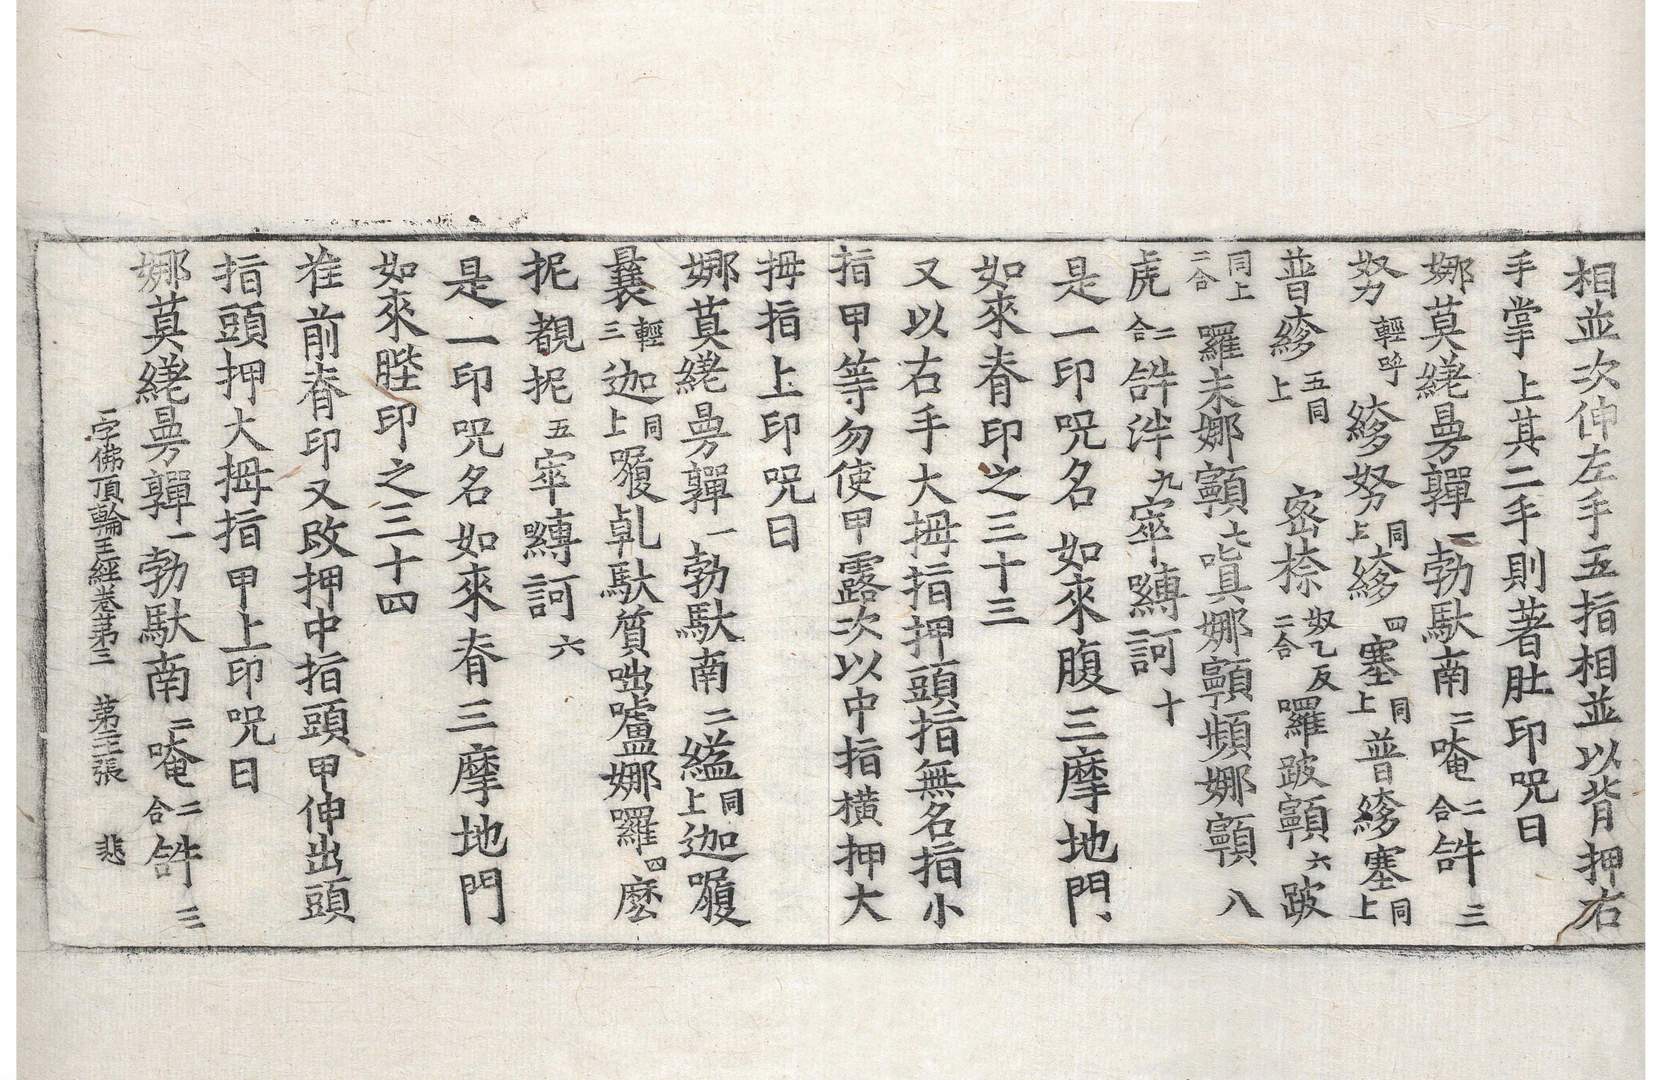 相並次伸左手五指相並以背押右
手掌上其二手則著肚印呪曰
娜莫繞曼勞嚲一勃馱南二唵二合𤙖三
努輕呼跢努同上跢四塞同上普跢塞同上
普跢五同上窋㮈奴乙反二合囉跛顫六跛
同上二合囉末娜顫七嗔娜顫頻娜顫八
虎二合𤙖泮九窣嚩訶十
是一印呪名如來腹三摩地門
如來脊印之三十三
又以右手大拇指押頭指無名指小
指甲等勿使甲露次以中指橫押大
拇指上印呪曰
娜莫繞曼勞嚲一勃馱南二縕同上迦履
曩輕三迦同上履乹馱質咄嚧娜囉四麼
抳覩抳五窣嚩訶六
是一印呪名如來脊三摩地門
如來䏶印之三十四
准前脊印又改押中指頭甲伸出頭
指頭押大拇指甲上印呪曰
娜莫繞曼勞嚲一勃馱南二唵二合𤙖三
一字佛頂輪王經卷第三　第三張　悲